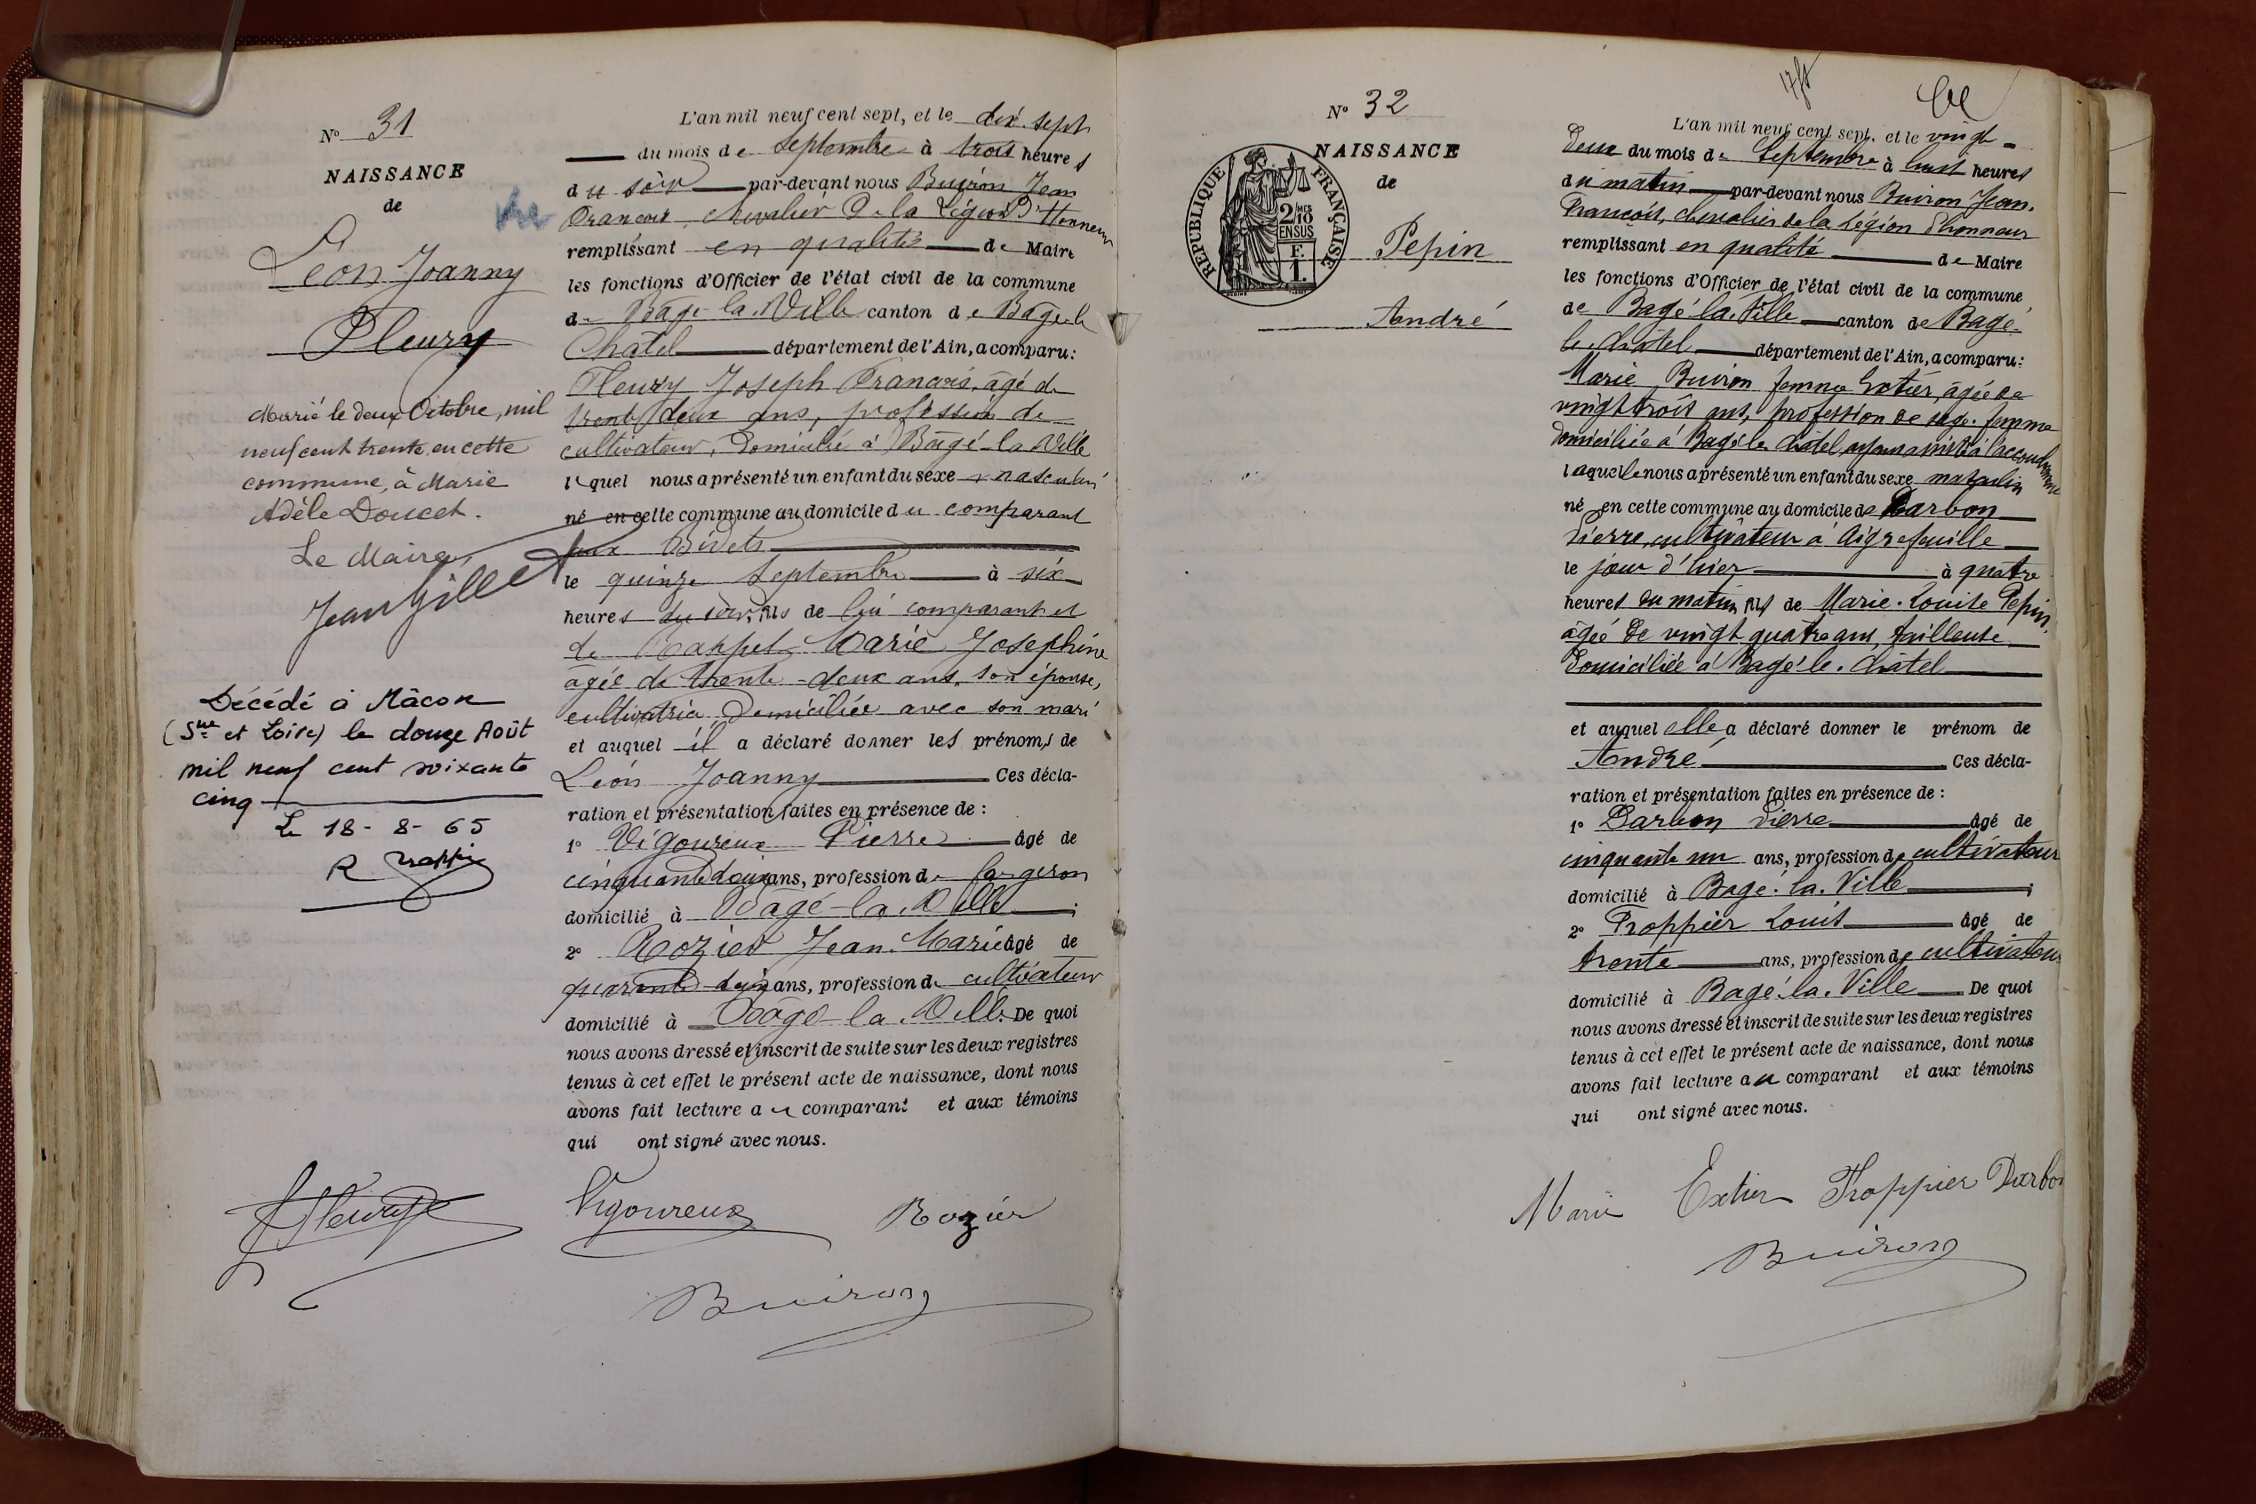 N° 31
NAISSANCE
de
Léon Joanny
Fleury
Marié le deux Octobre, mil
neuf cent trente, en cette
commune, à Marie
Adèle Doucet.
Le Maire,
Jean Gillet
Décédé à Mâcon
(Sne et Loire) le douze Août
mil neuf cent soixante
cinq
Le 18-8-65
L'an mil neuf cent sept, et le dix sept
du mois de Septembre à trois heures
du soir par-devant nous Buiron Jean
François, chevalier de la Légion d'Honneur
remplissant en qualité de Maire
les fonctions d'Officier de l'état civil de la commune
de Bâgé-la-Ville canton de Bâgé-le
Châtel département de l'Ain, a comparu:
Fleury Joseph François, âgé de
trente deux ans, profession de
cultivateur, domicilié à Bâgé-la-Ville
lequel nous a présenté un enfant du sexe masculin
né en cette commune au domicile du comparant
aux Bidets
le quinze Septembre à six
heures du soir, fils de lui comparant et
de Marie Josephine
âgée de trente-deux ans, son épouse,
cultivatrice domiciliée avec son mari
et auquel il a déclaré donner les prénoms de
Léon Joanny Ces décla-
ration et présentation faites en présence de :
1° Vigoureux Pierre âgé de
cinquante deux ans, profession de forgeron
domicilié à Bâgé-la-Ville ;
2° Rozier Jean-Marie âgé de
quarante deux ans, profession de cultivateur
domicilié à Bâgé-la-Ville. De quoi
nous avons dressé et inscrit de suite sur les deux registres
tenus à cet effet le présent acte de naissance, dont nous
avons fait lecture au comparant et aux témoins
qui ont signé avec nous.
J Fleury Vigoureux Rozier
Buiron
N° 32
NAISSANCE
de
RÉPUBLIQUE FRANÇAISE
2 MES
/10
EN SUS
F.
1.
Pepin
André
L'an mil neuf cent sept, et le vingt-
deux du mois de Septembre à huit heures
du matin par-devant nous Buiron Jean.
François, chevalier de la Légion d'honneur
remplissant en qualité de Maire
les fonctions d'Officier de l'état civil de la commune
de Bagé-la-Ville canton de Bagé-
le-châtel département de l'Ain, a comparu:
Marie Buiron femme Extier, âgée de
vingt trois ans, profession de sage-femme
domiciliée à Bagé-le-châtel, ayant assisté à l'accouchement
laquelle nous a présenté un enfant du sexe masculin
né en cette commune au domicile de Darbon
Pierre, cultivateur à Aigrefeuille
le jour d'hier à quatre
heures du matin fils de Marie-Louise Pepin,
âgée de vingt quatre ans, tailleuse
domiciliée à Bagé-le-châtel
et auquel elle a déclaré donner le prénom de
André Ces décla-
ration et présentation faites en présence de :
1° Darbon Pierre âgé de
cinquante un ans, profession de cultivateur
domicilié à Bagé-la-Ville ;
2° Proppier Louis âgé de
trente ans, profession de cultivateur
domicilié à Bagé-la-Ville De quoi
nous avons dressé et inscrit de suite sur les deux registres
tenus à cet effet le présent acte de naissance, dont nous
avons fait lecture au comparant et aux témoins
qui ont signé avec nous.
Marie Extier Proppier Darbon
Buiron